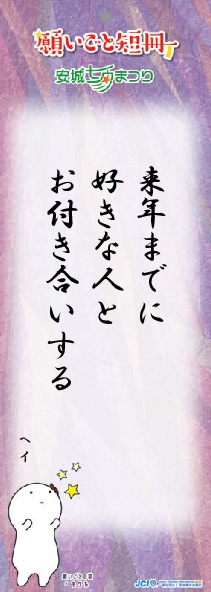 願いごと短冊
安城七夕まつり
来年までに
好きな人と
お付き合いする
ヘイ
JCI